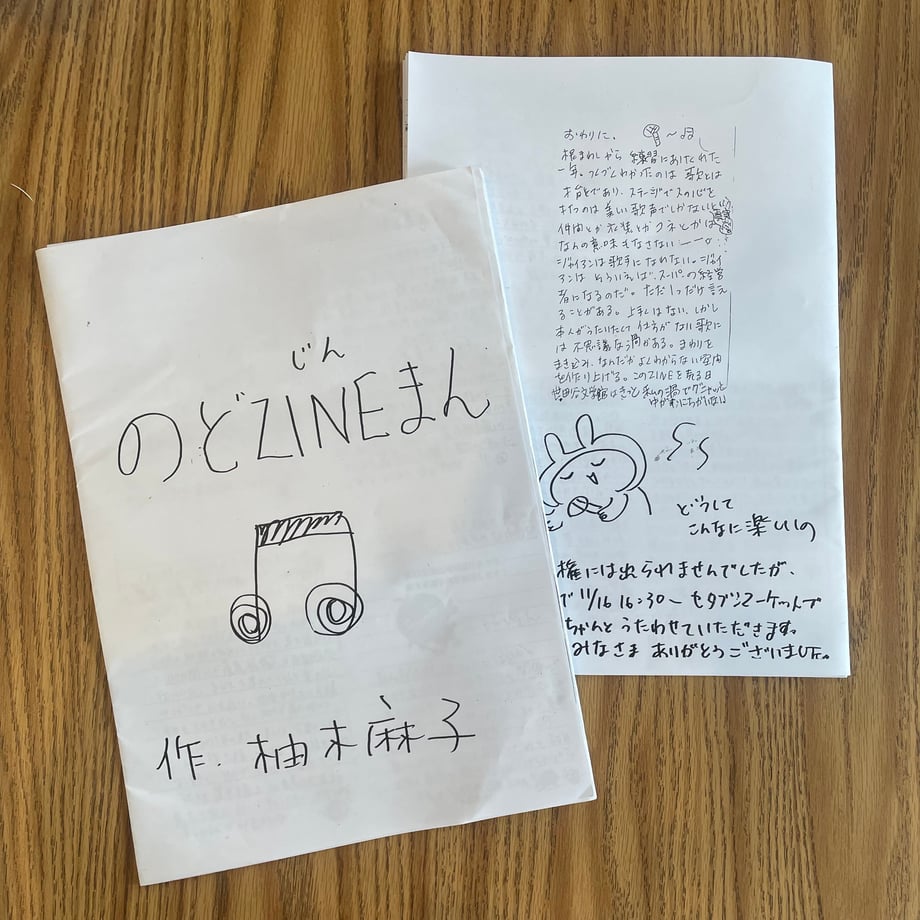 じん
のどZINEまん
作.柚木麻子
おわりに、
根まわしから 練習にあけくれた
一年。つくづくわかったのは 歌とは
才能であり、ステージで人の心を
打つのは 美しい歌声でしかないという
仲間とか 衣装とか クネとかは
なんの意味もなさない
ジャイアンは歌手になれない。ジャイ
アンは そういえば、スーパーの経営
者になるのだ。ただ1つだけ言え
ることがある。上手くはない、しかし
本人がうたいたくて仕方がない歌に
は 不思議な渦がある。まわりを
まきこみ、なんだかよくわからない空間
を作り上げる。このZINEを 日
世田谷文学館はきっと 私の渦でグニャッと
ゆがむにちがいない
どうして
こんなに楽しいの
権には出られませんでしたが、
で 11/16 16:30〜 セタブンマーケットで
ちゃんと うたわせていただきます。
みなさま ありがとうございました。